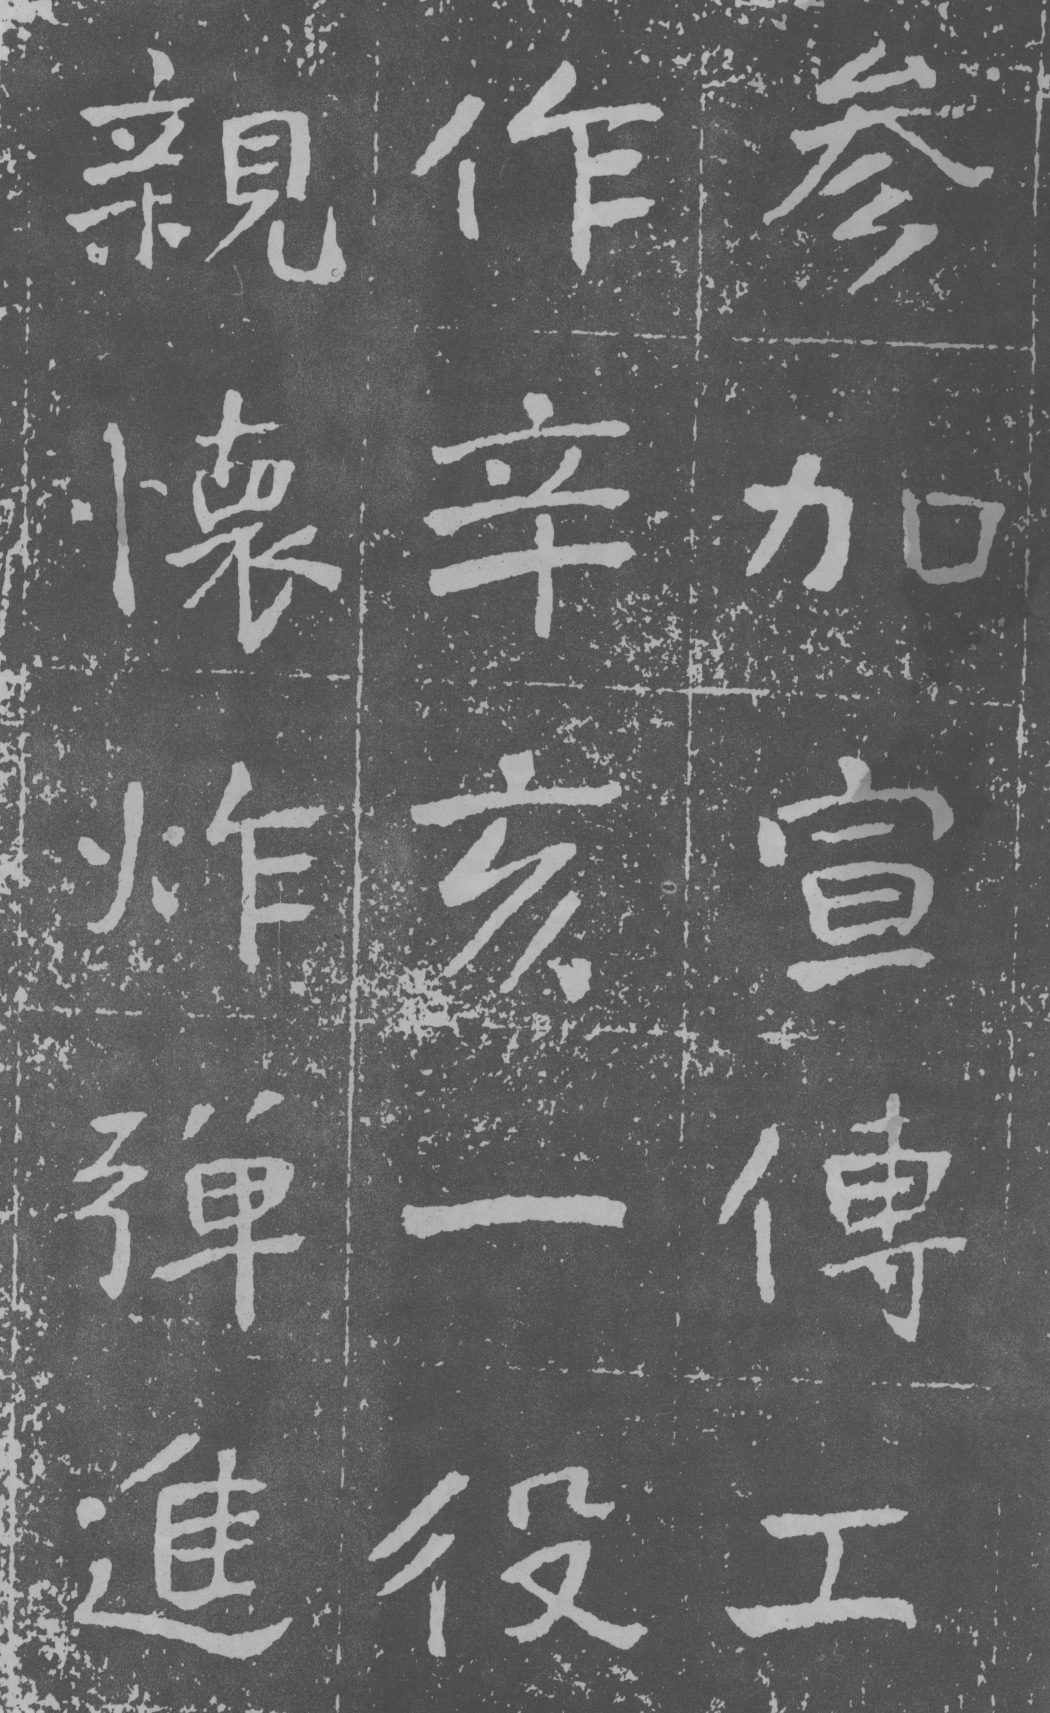 参加宣傳工
作辛亥一役
親懷炸彈進